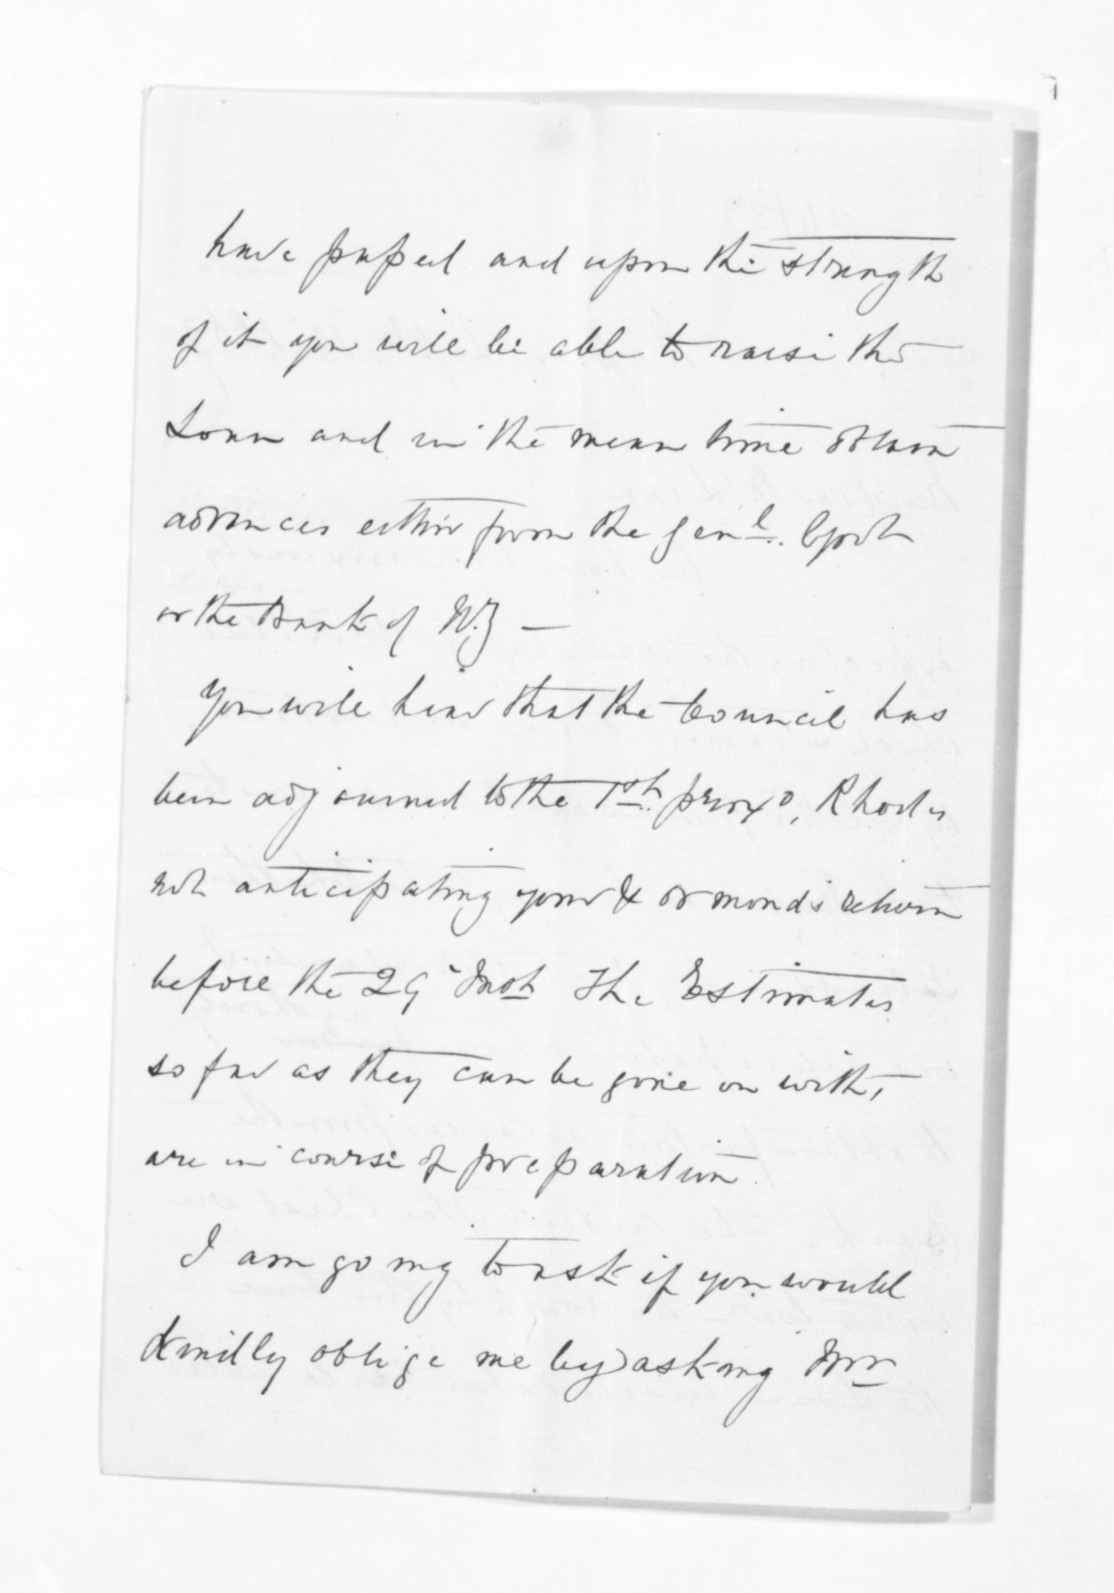 have passed and upon the strength
of it you will be able to raise the
Loan and in the mean time obtain
advances either from the Genl. Govt
or the Bank of N.Z —
You will hear that the Council has
been adjourned to the 1st proxo, Rhodes
not anticipating your & Ormond's return
before the 29 Inst The Estimates
so far as they can be gone on with,
are in course of preparation.
I am going to ask if you would
kindly oblige me by asking Mr